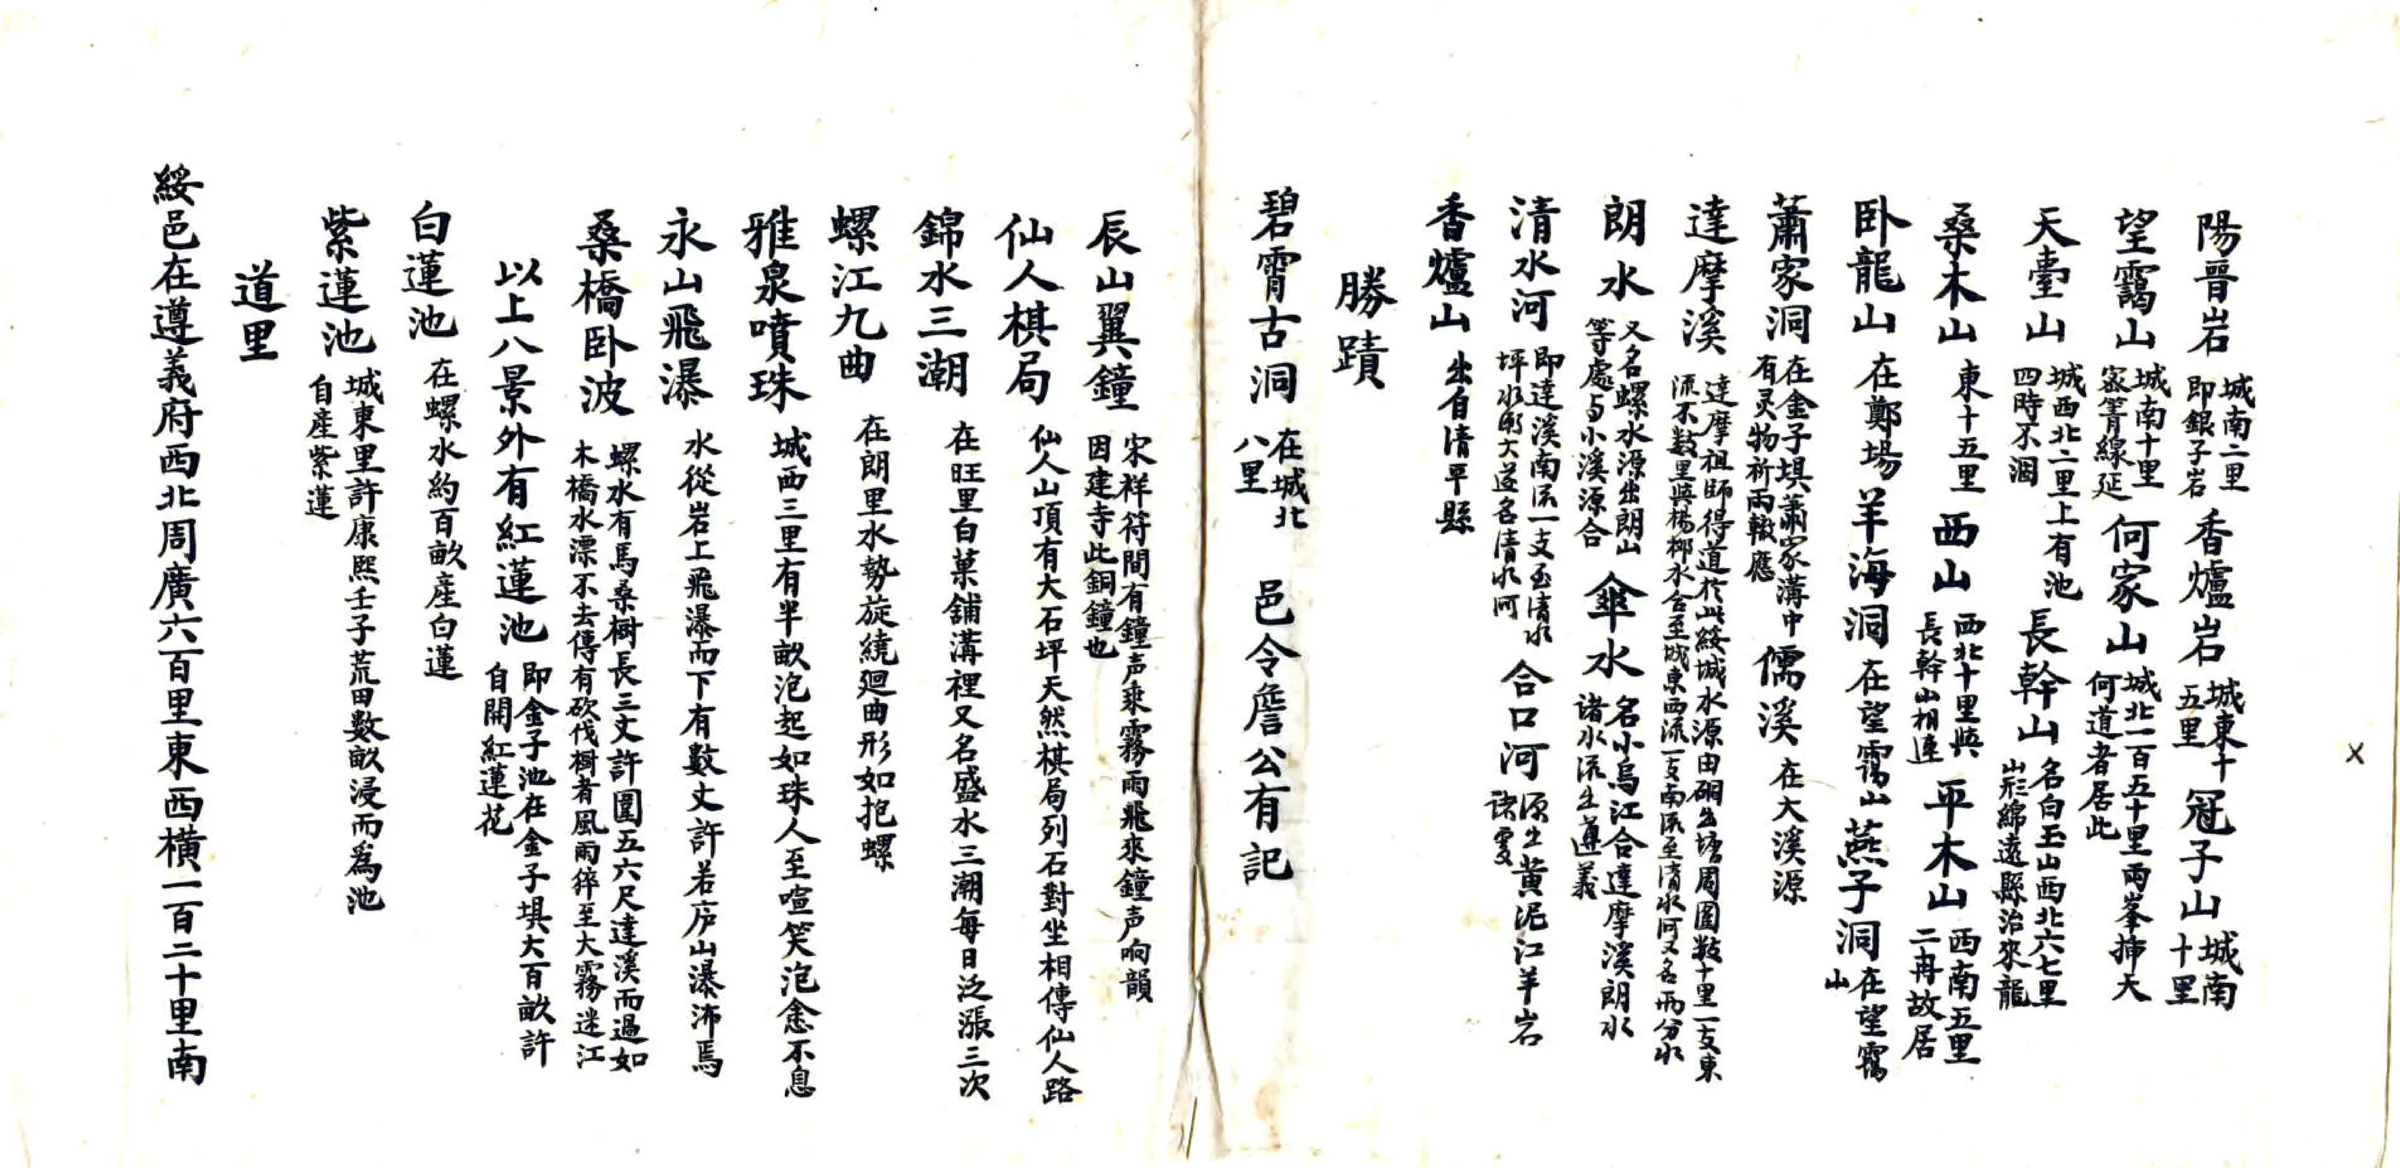 陽晉岩 城南二里即銀子岩 香爐岩 城東十五里 冠子山 城南十里
望靄山 城南十里密箐線延 何家山 城北一百五十里兩峯揷天何道者居此
天臺山 城西北二里上有池四時不涸 長幹山 名白玉山西北六七里山形綿遠縣治來龍
桑木山 東十五里 西山 西北十里與長幹山相連 平木山 西南五里二冉故居
卧龍山 在鄭場 羊海洞 在望靄山 燕子洞 在望靄山
蕭家洞 在金子垻蕭家溝中有灵物祈雨輙應 儒溪 在大溪源
達摩溪 達摩祖師得道於此綏城水源由硐出塘周圍數十里一支東流不數里與楊柳水合至城東西流一支南流至清水河又名兩分水
朗水 又名螺水源出朗山等處与小溪源合 傘水 名小烏江合達摩溪朗水諸水流出遵義
清水河 即達溪南流一支至清水坪水漸大遂名清水河 合口河 源出黃泥江羊岩諸處
香爐山 出自清平縣
勝蹟
碧霄古洞 在城北八里 邑令詹公有記
辰山翼鐘 宋祥符間有鐘声乘霧雨飛來鐘声响韻因建寺此銅鐘也
仙人棋局 仙人山頂有大石坪天然棋局列石對坐相傳仙人路
錦水三潮 在旺里白菓舖溝裡又名盛水三潮每日泛漲三次
螺江九曲 在朗里水勢旋繞廻曲形如抱螺
雅泉噴珠 城西三里有半畝泡起如珠人至喧笑泡愈不息
永山飛瀑 水從岩上飛瀑而下有數丈許若庐山瀑沛焉
桑橋卧波 螺水有馬桑樹長三丈許圍五六尺達溪而過如木橋水漂不去傳有砍伐樹者風雨猝至大霧迷江
以上八景外有紅蓮池 即金子池在金子垻大百畝許自開紅蓮花
白蓮池 在螺水約百畝產白蓮
紫蓮池 城東里許康熙壬子荒田數畝浸而爲池自產紫蓮
道里
綏邑在遵義府西北周廣六百里東西橫一百二十里南
X